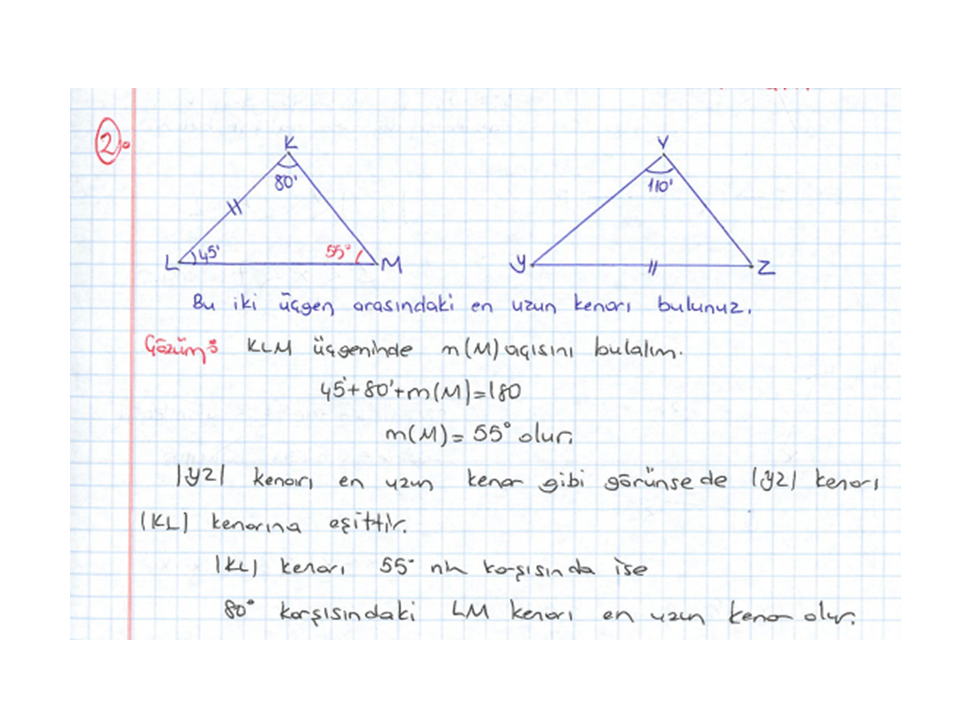 2.
K V
80° 110°
L 45° 55° M Y Z
Bu iki üçgen arasındaki en uzun kenarı bulunuz.
Çözüm: KLM üçgeninde m(M) açısını bulalım.
45°+80°+m(M)=180
m(M)= 55° olur.
|YZ| kenarı en uzun kenar gibi görünse de |YZ| kenarı
|KL| kenarına eşittir.
|KL| kenarı 55° nin karşısında ise
80° karşısındaki LM kenarı en uzun kenar olur.